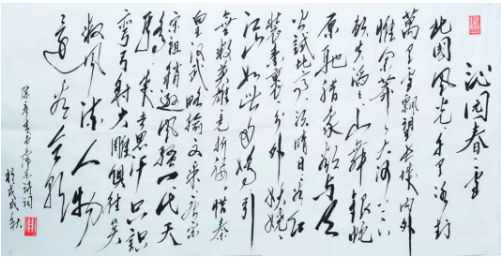 沁园春雪
北国风光千里冰封
萬里雪飘望长城内外
惟余莽々大河上下
顿失滔々山舞银蛇
原驰蜡象欲与天
公试比高须晴日看红
装素裹分外妖娆
江山如此多娇引
無数英雄竞折腰惜秦
皇汉武略输文采唐宗
宋祖稍逊风骚一代天
骄成吉思汗只识
弯弓射大雕俱往矣
数风流人物
还看今朝
书毛泽东诗词
於戊戌秋